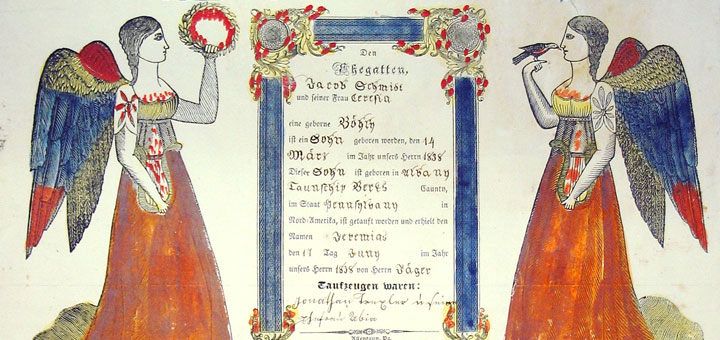 Den
Ehegatten,
Jacob Schmidt
und seiner Frau Ceresia
eine geborne Böhly
ist ein Sohn geboren worden, den 14
März im Jahr unsers Herrn 1838
Dieser Sohn ist geboren in Albany
Taunschip Berks Caunty,
im Staat Pennsylvany in
Nord-Amerika, ist getauft worden und erhielt den
Namen Jeremias
den 17 Tag Juny im Jahr
unsers Herrn 1838 von Herrn Jäger
Taufzeugen waren:
Jonathan Trexler u seine
Allentaun, Pa.